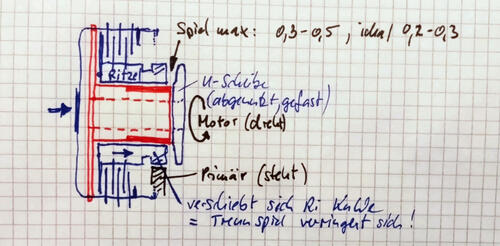 Spiel max: 0,3-0,5, ideal 0,2-0,3
Ritzel
U-Scheibe
(abgenutzt, gefast)
Motor (dreht)
Primär (steht)
verschiebt sich Ri KuWe
= Trennspiel verringert sich!